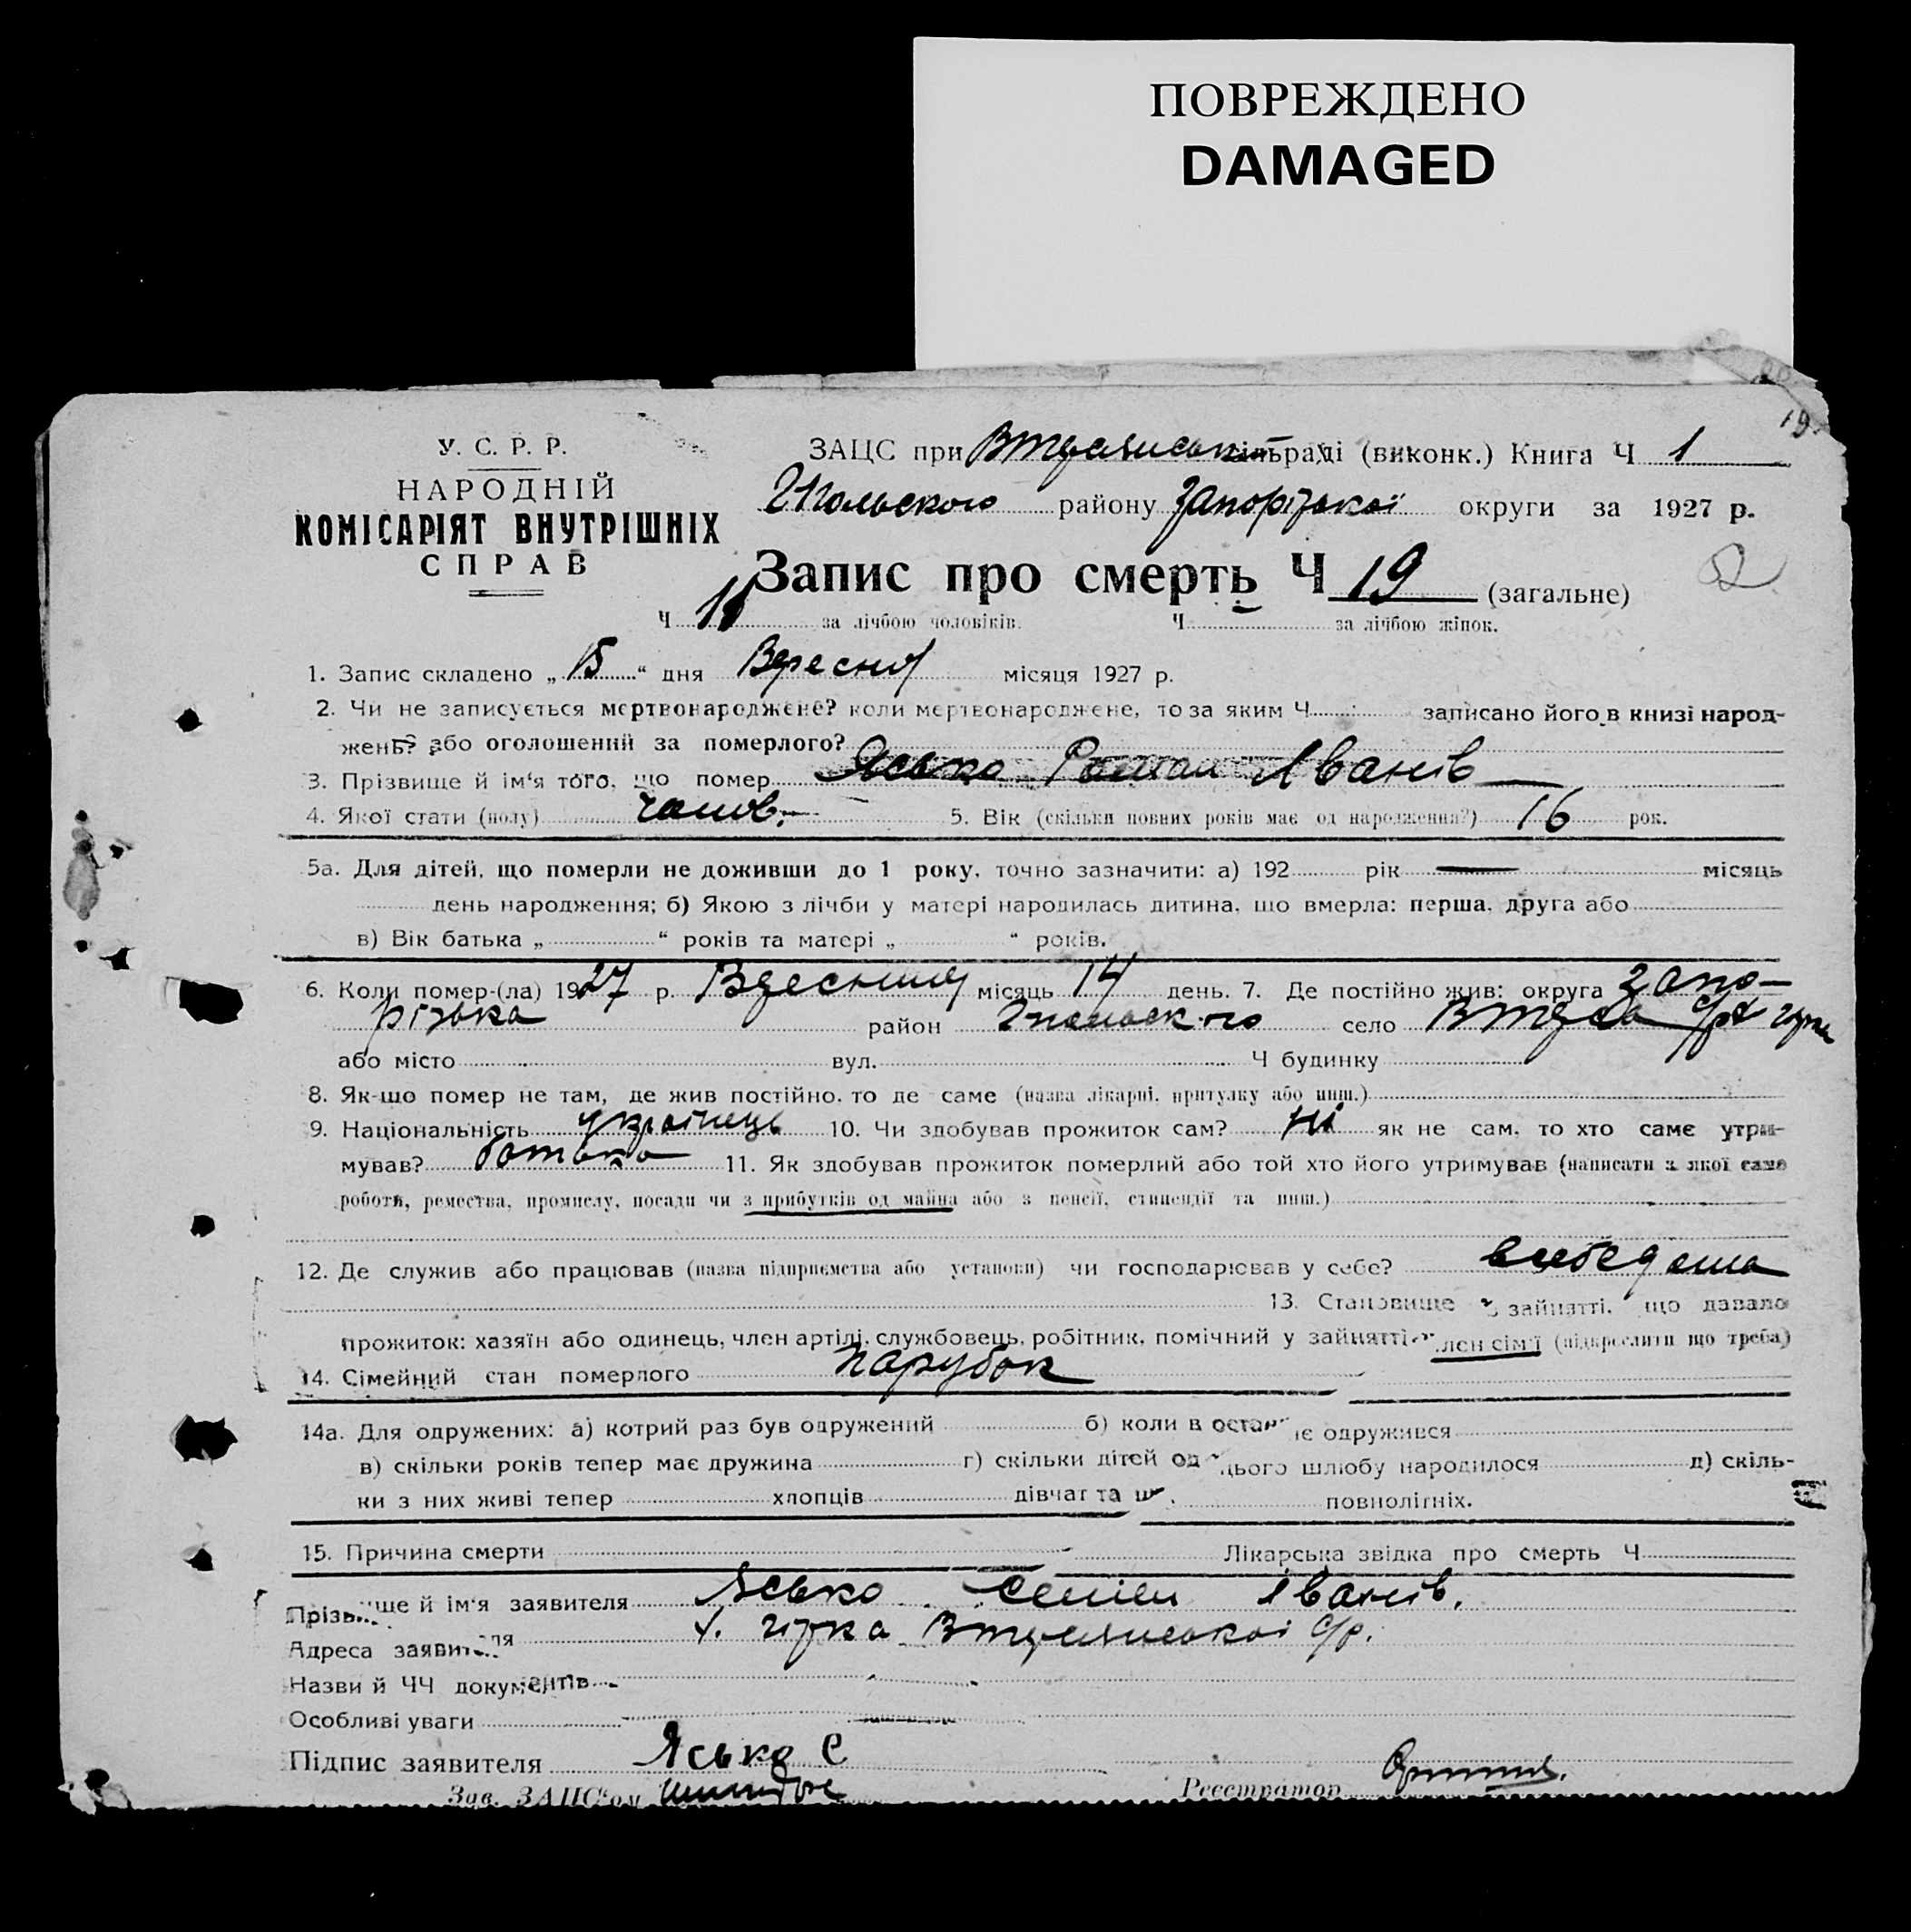 ПОВРЕЖДЕНО
DAMAGED
19
У. С. Р. Р.
НАРОДНІЙ
КОМІСАРІЯТ ВНУТРІШНІХ
СПРАВ
ЗАЦС при сільраді (виконк.) Книга Ч 1
району Запорізької округи за 1927 р.
Запис про смерть Ч 19 (загальне)
Ч 11 за лічбою чоловіків. Ч за лічбою жінок.
1. Запис складено „ 15 “ дня Вересня місяця 1927 р.
2. Чи не записується мертвонароджене? коли мертвонароджене, то за яким Ч записано його в книзі народ-
жень? або оголошений за померлого?
3. Прізвище й ім'я того, що помер Ясько Роман Іванів
4. Якої стати (полу) чолов. 5. Вік (скільки повних років має од народження?) 16 рок.
5а. Для дітей, що померли не доживши до 1 року, точно зазначити: а) 192 рік — місяць
день народження; б) Якою з лічби у матері народилась дитина, що вмерла: перша, друга або
в) Вік батька „ “ років та матері „ “ років.
6. Коли помер-(ла) 1927 р. місяць 14 день. 7. Де постійно жив: округа Запо-
різька район село
або місто вул. Ч будинку
8. Як-що помер не там, де жив постійно, то де саме (назва лікарні, притулку або инш.)
9. Національність українець 10. Чи здобував прожиток сам? Ні як не сам, то хто саме утри-
мував? батько 11. Як здобував прожиток померлий або той хто його утримував (написати з якої саме
роботи, ремества, промислу, посади чи з прибутків од майна або з пенсії, стипендії та инш.)
12. Де служив або працював (назва підприємства або установи) чи господарював у себе?
13. Становище в зайнятті, що давало
прожиток: хазяїн або одинець, член артілі, службовець, робітник, помічний у зайнятті член сім'ї (підкреслити що треба)
14. Сімейний стан померлого парубок
14а. Для одружених: а) котрий раз був одружений б) коли в останнє одружився
в) скільки років тепер має дружина г) скільки дітей од цього шлюбу народилося д) скіль-
ки з них живі тепер хлопців дівчат та повнолітніх.
15. Причина смерти Лікарська звідка про смерть Ч
Прізвище й ім'я заявителя Ясько Семен Іванів.
Адреса заявителя х. Гірка с/р.
Назви й ЧЧ документів
Особливі уваги
Підпис заявителя Ясько С
Зав. ЗАЦС'ом Реєстратор